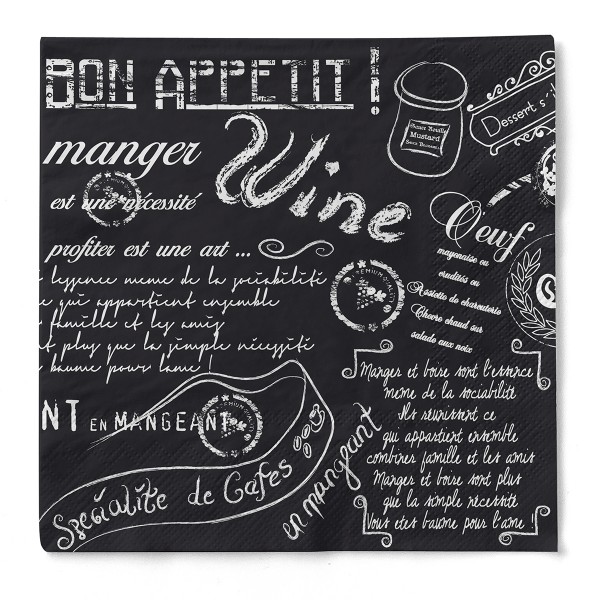 BON APPETIT !
Mustard
Dessert s
manger
Wine
est une nécessité
Oeuf
profiter est une art ...
mayonaise ou
crudités ou
Assiette de charcuterie
Chevre chaud sur
salade aux noix
PREMIUM
l essence meme de la sociabilité
e qui appartient ensemble
famille et les amis
t plus que la simple nécessité
baume pour lame !
NT EN MANGEANT
Specialite de Cafes
en mangeant
Manger et boire sont l'essence
meme de la sociabilité
Ils reunissent ce
qui appartient ensemble
combiner famille et les amis
Manger et boire sont plus
que la simple necessité
Vous etes baume pour l'ame !